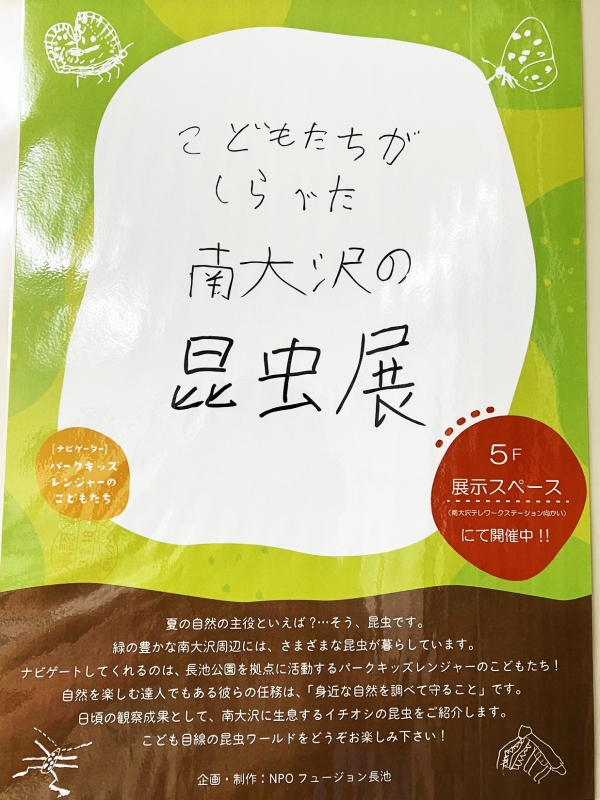 こどもたちが
しらべた
南大沢の
昆虫展
[ナビゲーター]
パークキッズ
レンジャーの
こどもたち
5F
展示スペース
(南大沢テレワークステーション向かい)
にて開催中!!
夏の自然の主役といえば?…そう、昆虫です。
緑の豊かな南大沢周辺には、さまざまな昆虫が暮らしています。
ナビゲートしてくれるのは、長池公園を拠点に活動するパークキッズレンジャーのこどもたち!
自然を楽しむ達人でもある彼らの任務は、「身近な自然を調べて守ること」です。
日頃の観察成果として、南大沢に生息するイチオシの昆虫をご紹介します。
こども目線の昆虫ワールドをどうぞお楽しみ下さい!
企画・制作:NPOフュージョン長池